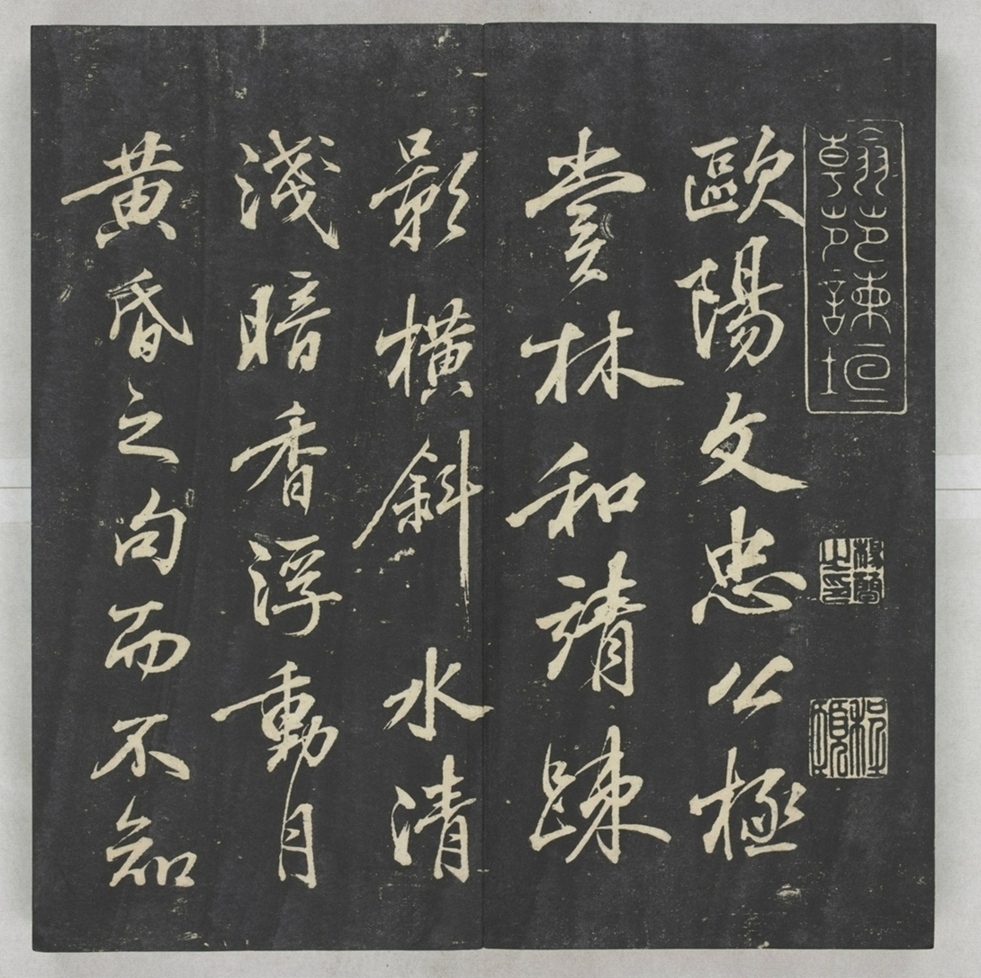 翰苑諫垣
歐陽文忠公極
賞林和靖踈
影橫斜水清
淺暗香浮動月
黃昏之句而不知